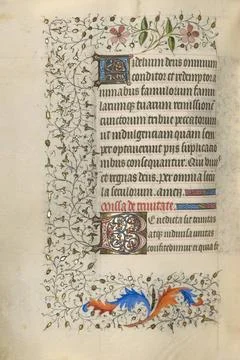 Fidelium deus omnium
conditor et redemptor a
nimabus famulorum famu
larumque tuarum remissionem
cunctorum tribue peccatorum
ut indulgenciam quam sem
per optaverunt piis supplicatio
nibus consequantur. Qui vivis
et regnas deus. per omnia secu
la seculorum. amen.
Missa de trinitate.
Benedicta sit trinitas
atque indivisa unitas
confitebimur ei quia fe